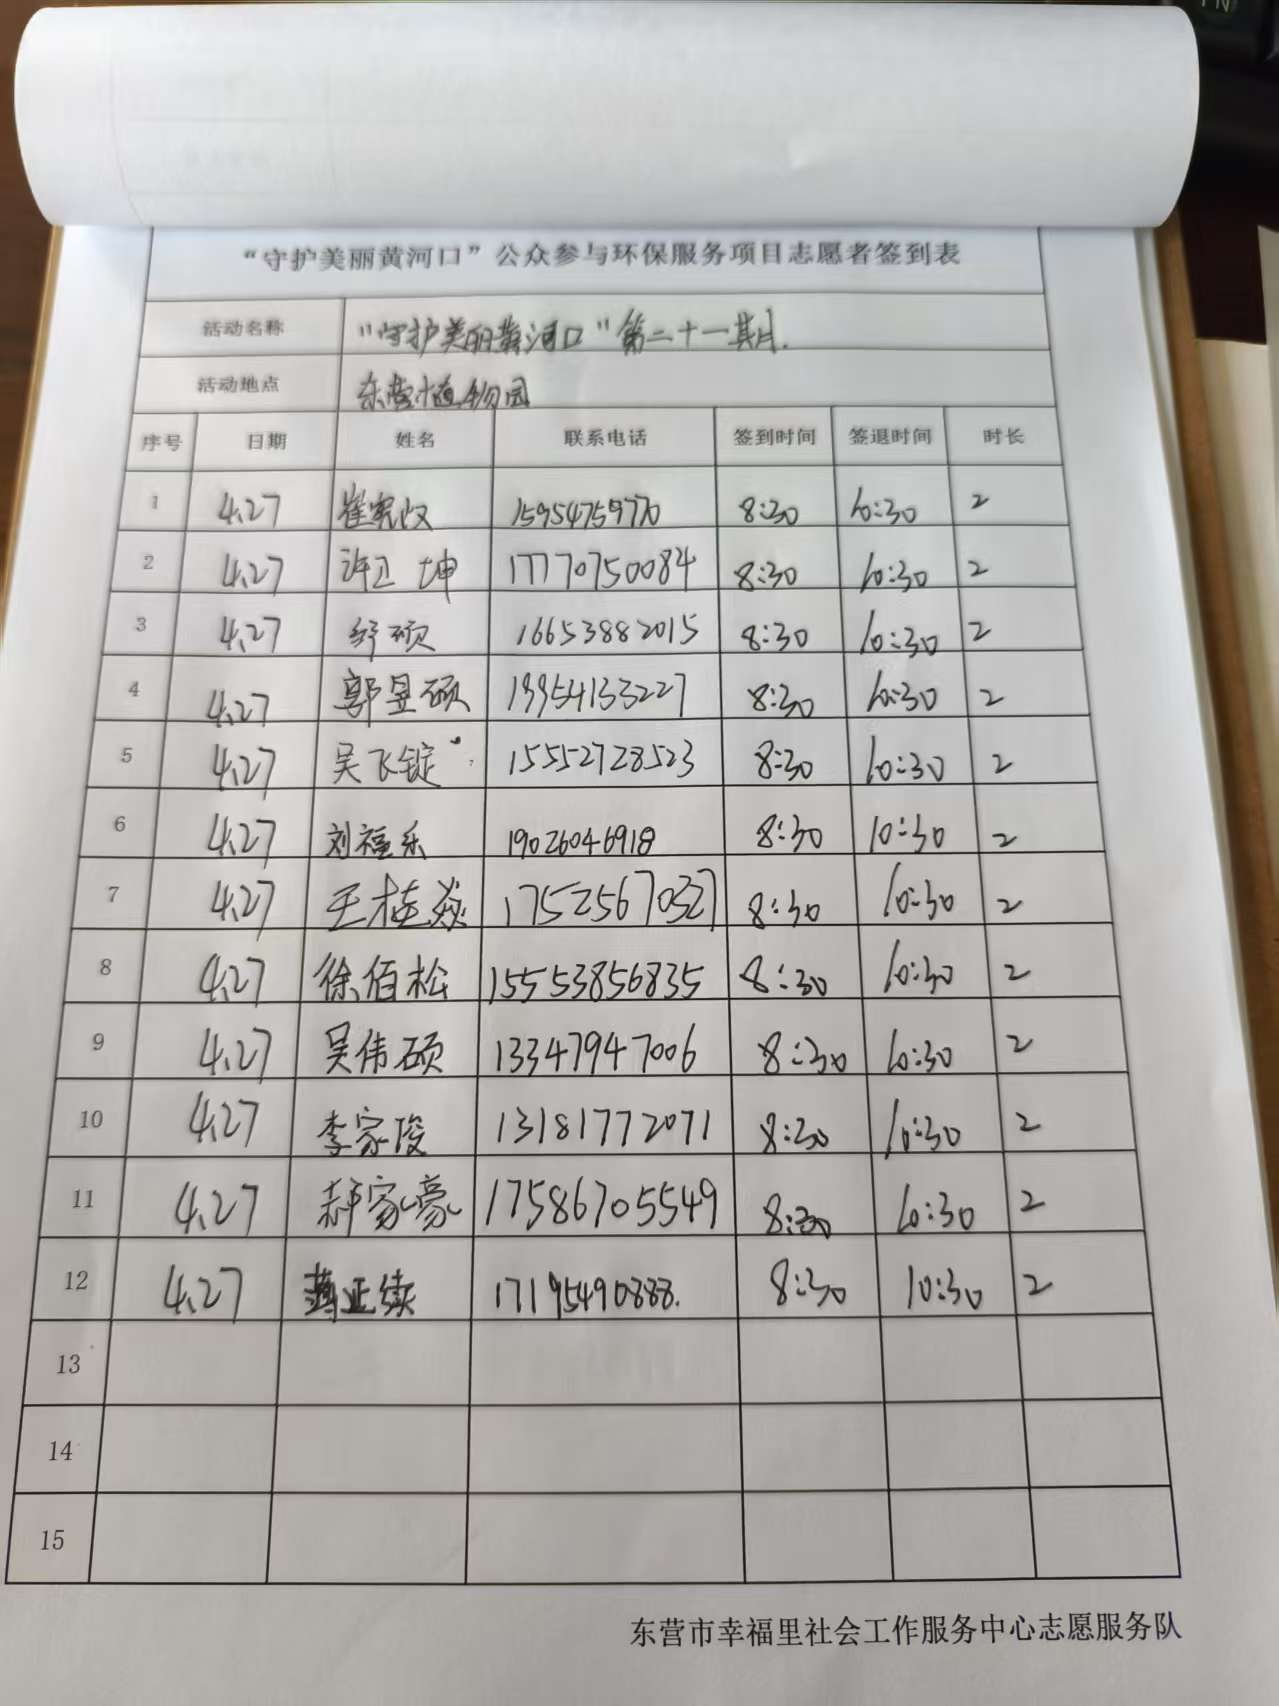 “守护美丽黄河口”公众参与环保服务项目志愿者签到表
活动名称 “守护美丽黄河口”第二十一期.
活动地点 东营植物园
序号 日期 姓名 联系电话 签到时间 签退时间 时长
1 4.27 崔宪 15954759770 8:30 10:30 2
2 4.27 许卫坤 17770750084 8:30 10:30 2
3 4.27 舒硕 16653882015 8:30 10:30 2
4 4.27 郭昱硕 19954133227 8:30 10:30 2
5 4.27 吴飞锭 15552728523 8:30 10:30 2
6 4.27 刘福乐 19026046918 8:30 10:30 2
7 4.27 王桂焱 17525670327 8:30 10:30 2
8 4.27 徐佰松 15553856835 8:30 10:30 2
9 4.27 吴伟硕 13347947006 8:30 10:30 2
10 4.27 李家俊 13181772071 8:30 10:30 2
11 4.27 郝家豪 17586705549 8:30 10:30 2
12 4.27 正续 17195490888. 8:30 10:30 2
13
14
15
东营市幸福里社会工作服务中心志愿服务队